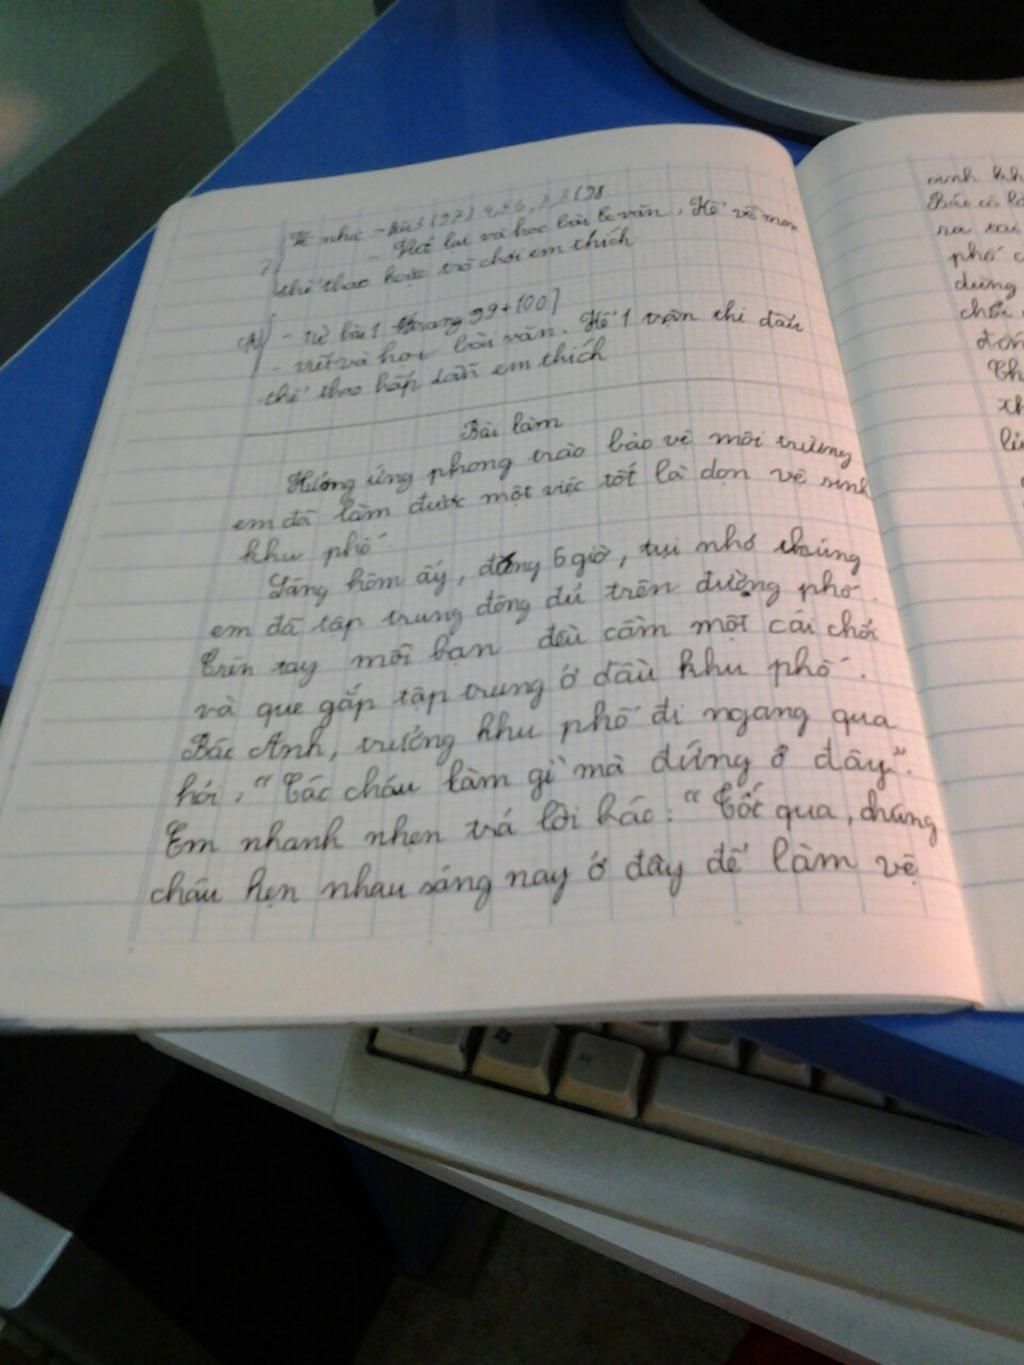 Về nhà - Bài 5 (97) 4, 5, 6, 7, 8 (98
- Viết lại và học bài TLvăn. Kể về môn
thể thao hoặc trò chơi em thích
- từ bài 1 trang 99 + 100]
- viết và học bài văn. Kể 1 trận thi đấu
thể thao hấp dẫn em thích
Bài làm
Hưởng ứng phong trào bảo vệ môi trường
em đã làm được một việc tốt là dọn vệ sinh
khu phố.
Sáng hôm ấy, đúng 6 giờ, tụi nhỏ chúng
em đã tập trung đông đủ trên đường phố.
Trên tay mỗi bạn đều cầm một cái chổi
và que gắp tập trung ở đầu khu phố.
Bác Anh, trưởng khu phố đi ngang qua
hỏi: "Các cháu làm gì mà đứng ở đây".
Em nhanh nhẹn trả lời bác: "Tốt qua, chúng
cháu hẹn nhau sáng nay ở đây để làm vệ
sinh kh
Bác có
ra
phố c
dừng
chổi
đốn
Th
xh